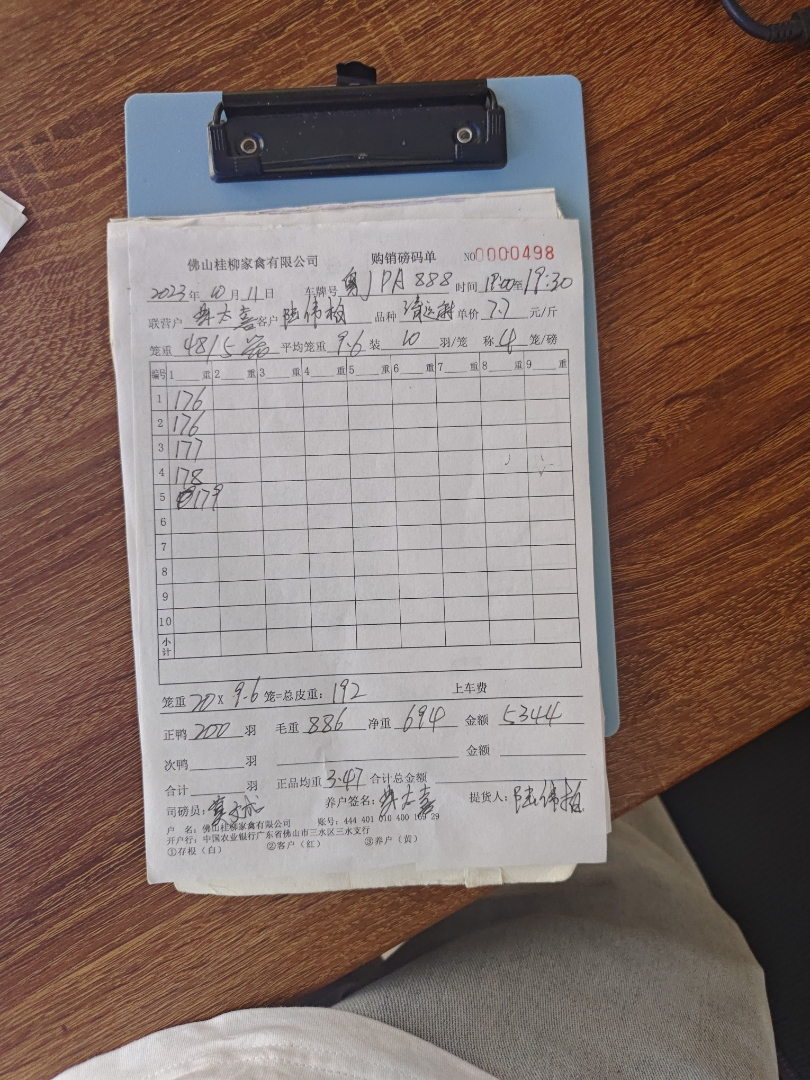 佛山桂柳家禽有限公司 购销磅码单 NO0000498
2023年10月11日 车牌号 粤JPA888 时间 19:00至19:30
联营户 客户 陆伟柏 品种 单价 7.7 元/斤
笼重 48/5 平均笼重 9.6 装 10 羽/笼 称 4 笼/磅
编号 1 重 2 重 3 重 4 重 5 重 6 重 7 重 8 重 9 重
1 176
2 176
3 177
4 178
5 179
6
7
8
9
10
小计
笼重 20 X 9.6 笼=总皮重: 192 上车费
正鸭 200 羽 毛重 886 净重 694 金额 5344
次鸭 羽 金额
合计 羽 正品均重 3.47 合计总金额
司磅员: 养户签名: 提货人: 陆伟柏
户 名: 佛山桂柳家禽有限公司 账号: 444 401 010 400 169 29
开户行: 中国农业银行广东省佛山市三水区三水支行
①存根(白) ②客户(红) ③养户(黄)